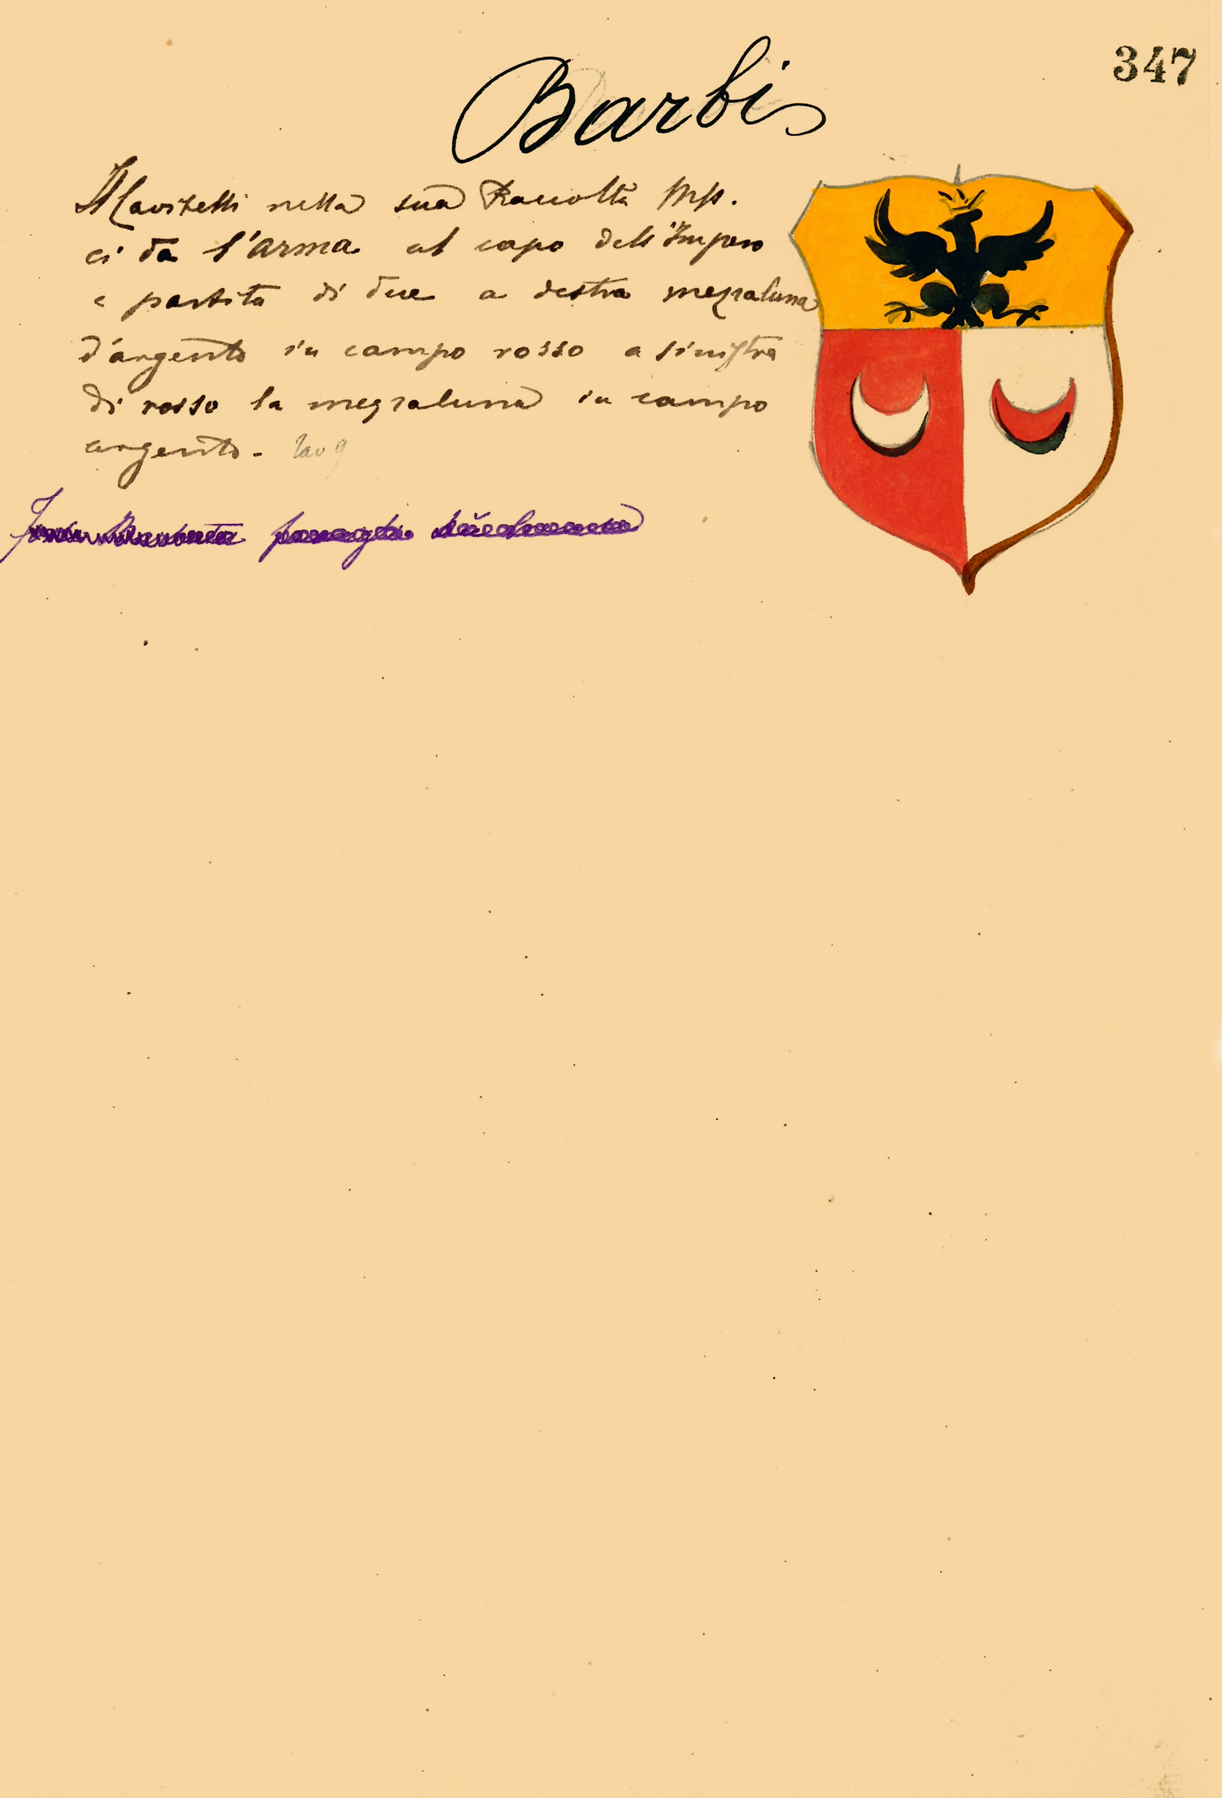 347
Barbi
Il Cavitelli nella sua Raccolta Mss.
ci da l'arma al capo dell'Impero
e partita di due a destra mezzaluna
d'argento in campo rosso a sinistra
di rosso la mezzaluna in campo
argento -